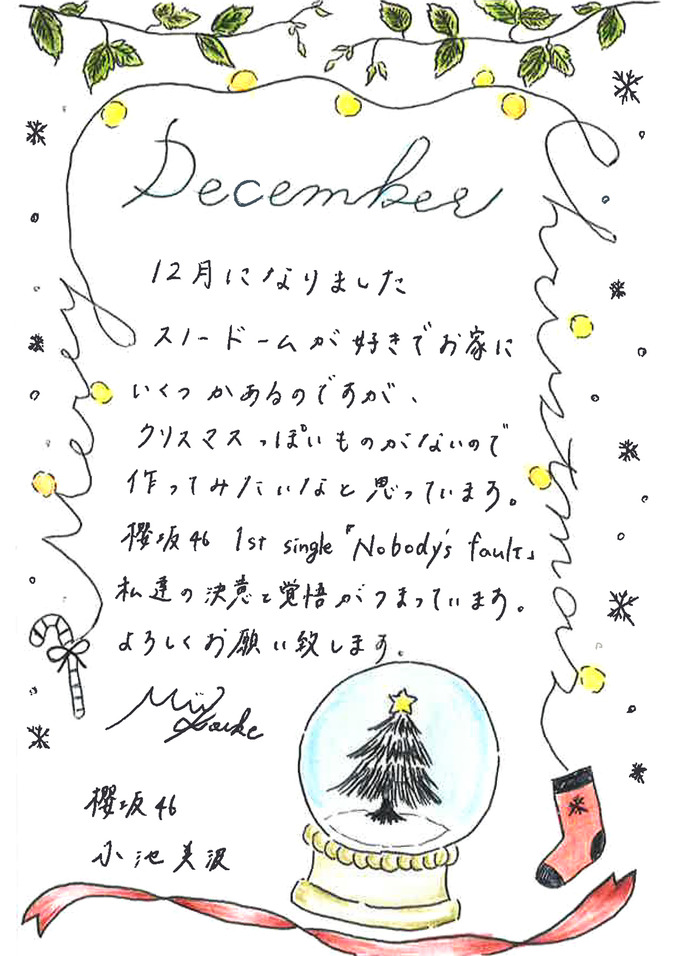 December
12月になりました
スノードームが好きでお家に
いくつかあるのですが、
クリスマスっぽいものがないので
作ってみたいなと思っています。
櫻坂46 1st single『Nobody's fault』
私達の決意と覚悟がつまっています。
よろしくお願い致します。
Mii Koike
櫻坂46
小池美波
Merry
Christmas